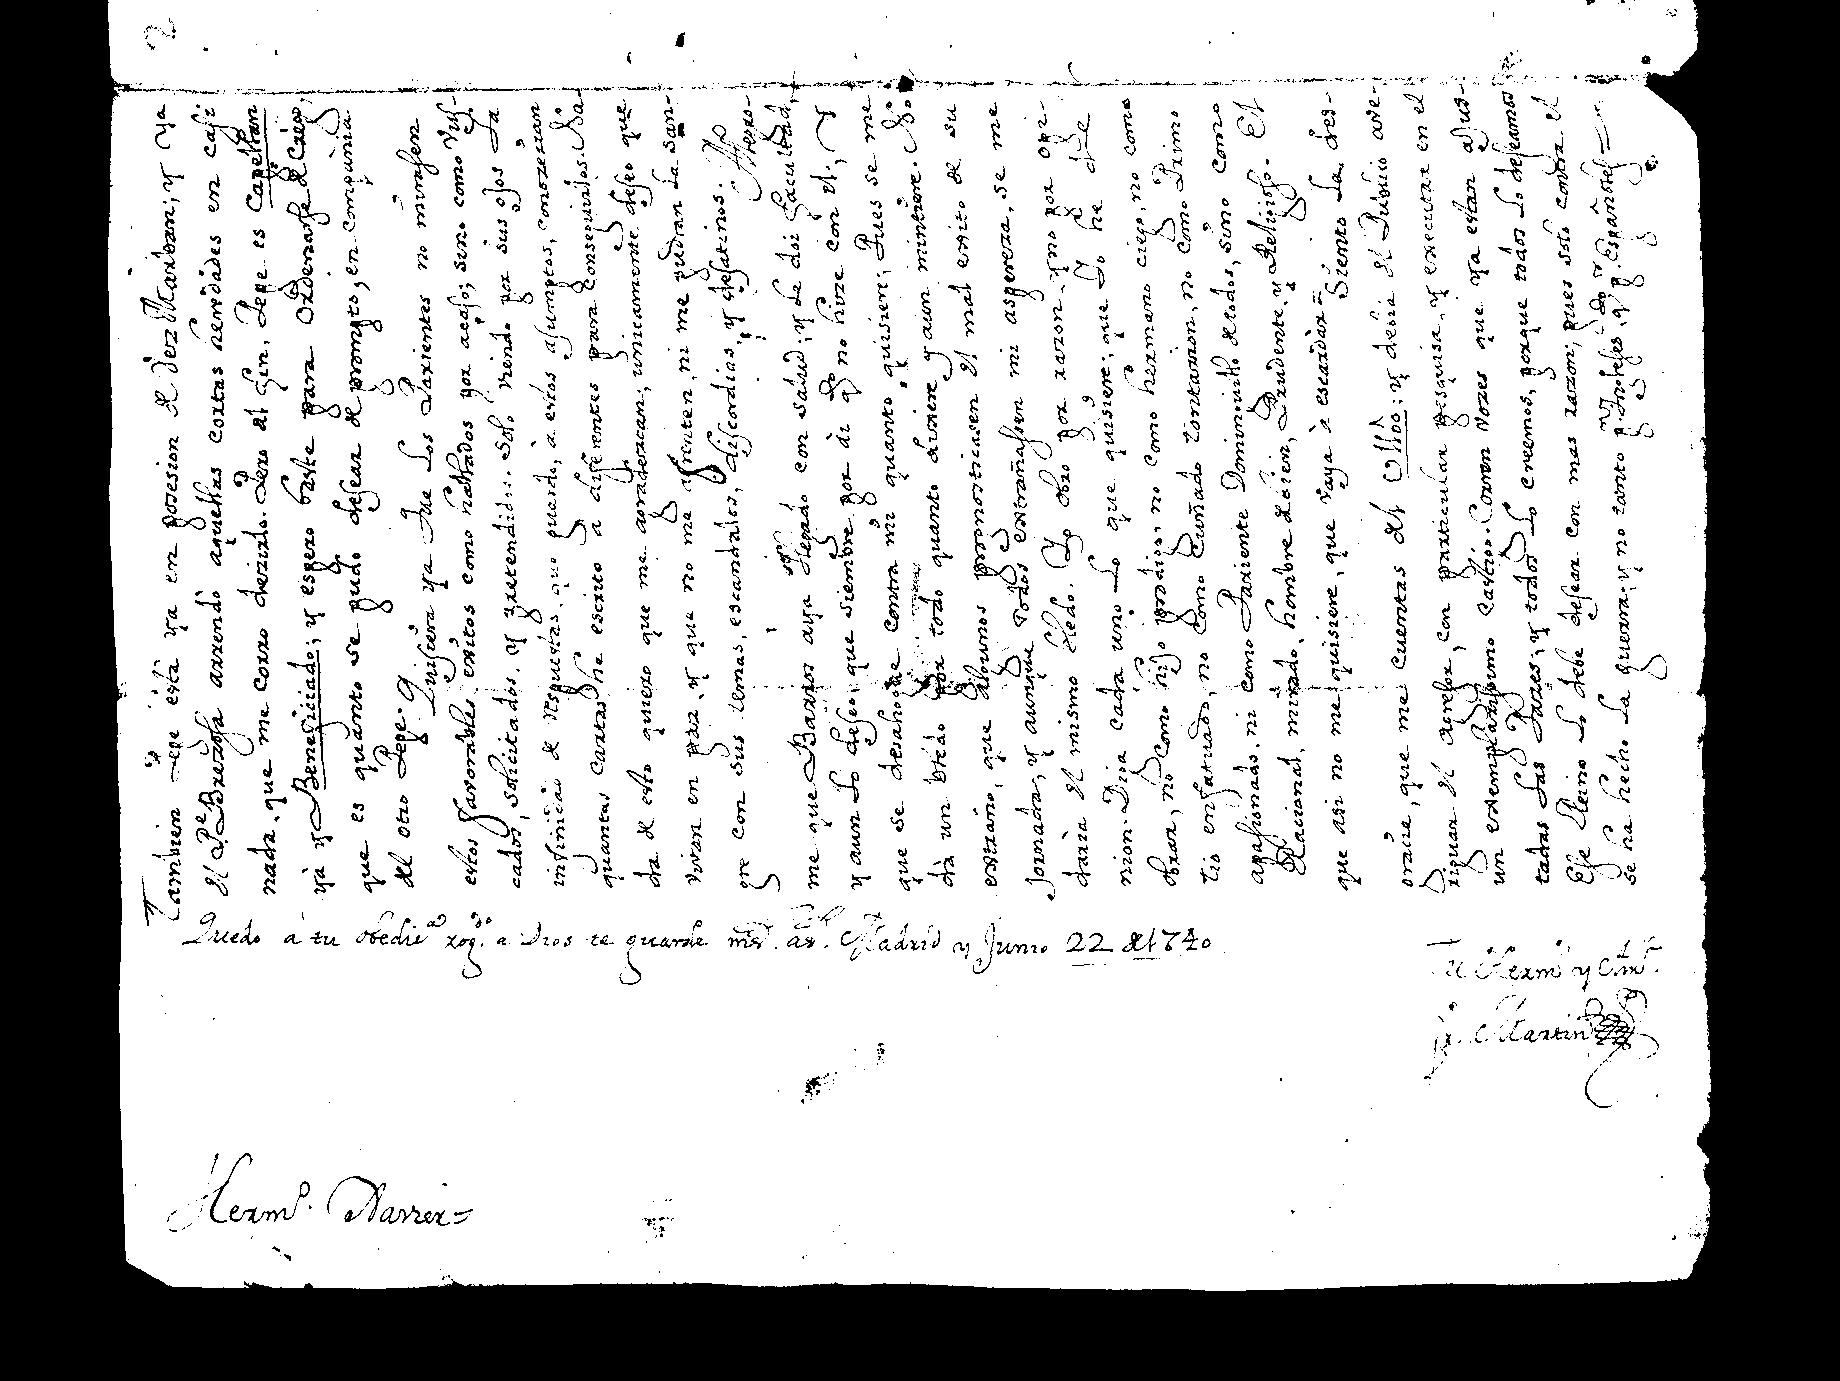 Tambien Pepe està ya en posesion de dez Marban; y ya
el Pe. Brizosa arrendò aquellas cortas heredades en casi
nada, que me corro dezirlo. Pero al fin, Pepe es Capellan
yà y Beneficiado; y espero baste para Ordenarse
que es quanto se pudo desear de prompto, en compañia
del otro Pepe.
Quisiera yo que los Parientes no mirasen
estos favorables exitos como hallados por acaso; sino como bus-
cados, solicitados, y pretendidos. Solo viendo por sus ojos la
infinidad de respuestas, que guardo, à estos asumptos, conozeran
quantas cartas he escrito a diferentes para conseguirlos. Na-
da de esto quiero que me agradezcan; unicamente deseo que
vivan en paz, y que no me afrenten, ni me pudran la san-
gre con sus temas, escandalos, discordias, y desatinos.
Alegro-
me que Barros aya llegado con salud; y le doi facultad,
y aun lo deseo, que siempre por ài no hize con el, y
que se desahogue contra mi quanto quisiere; Pues se me
dà un bledo por todo quanto dixere y aun mintiere. No
extraño, que algunos pronosticasen el mal exito de su
Jornada; y aunque todos extrañasen mi aspereza, se me
daria el mismo bledo. Yo obro por razon, y no por opi-
nion. Diga cada uno lo que quisiere; que Yo he de
obrar, no como hijo prodigo; no como hermano ciego, no como
tio enfatuado, no como Cuñado tontarron, no como Primo
apasionado, ni como Pariente Dominguito de todos, sino como
Racional, mirado, hombre de bien, Prudente, y Religioso. El
que asi no me quisiere, que vaya à escardar.
Siento la des-
gracia, que me cuentas del; y debia el Publico ave-
riguar el agresor, con particular pesquisa, y executar en el
un exemplarissimo castigo. Corren vozes que ya estan ajus-
tadas las Pazes; y todos lo creemos, porque todos lo deseamos
Ese Reino lo debe desear con mas razon; pues solo contra el
se ha hecho la guerra; y no tanto por Ingleses, quanto por Españoles.
Quedo à tu obedie.a rog.do a Dios te guarde ms. as. Madrid y Junio 22 de 1740
Tu Herm.o y Am.o
fr. Martin
Herm.o Xavier=